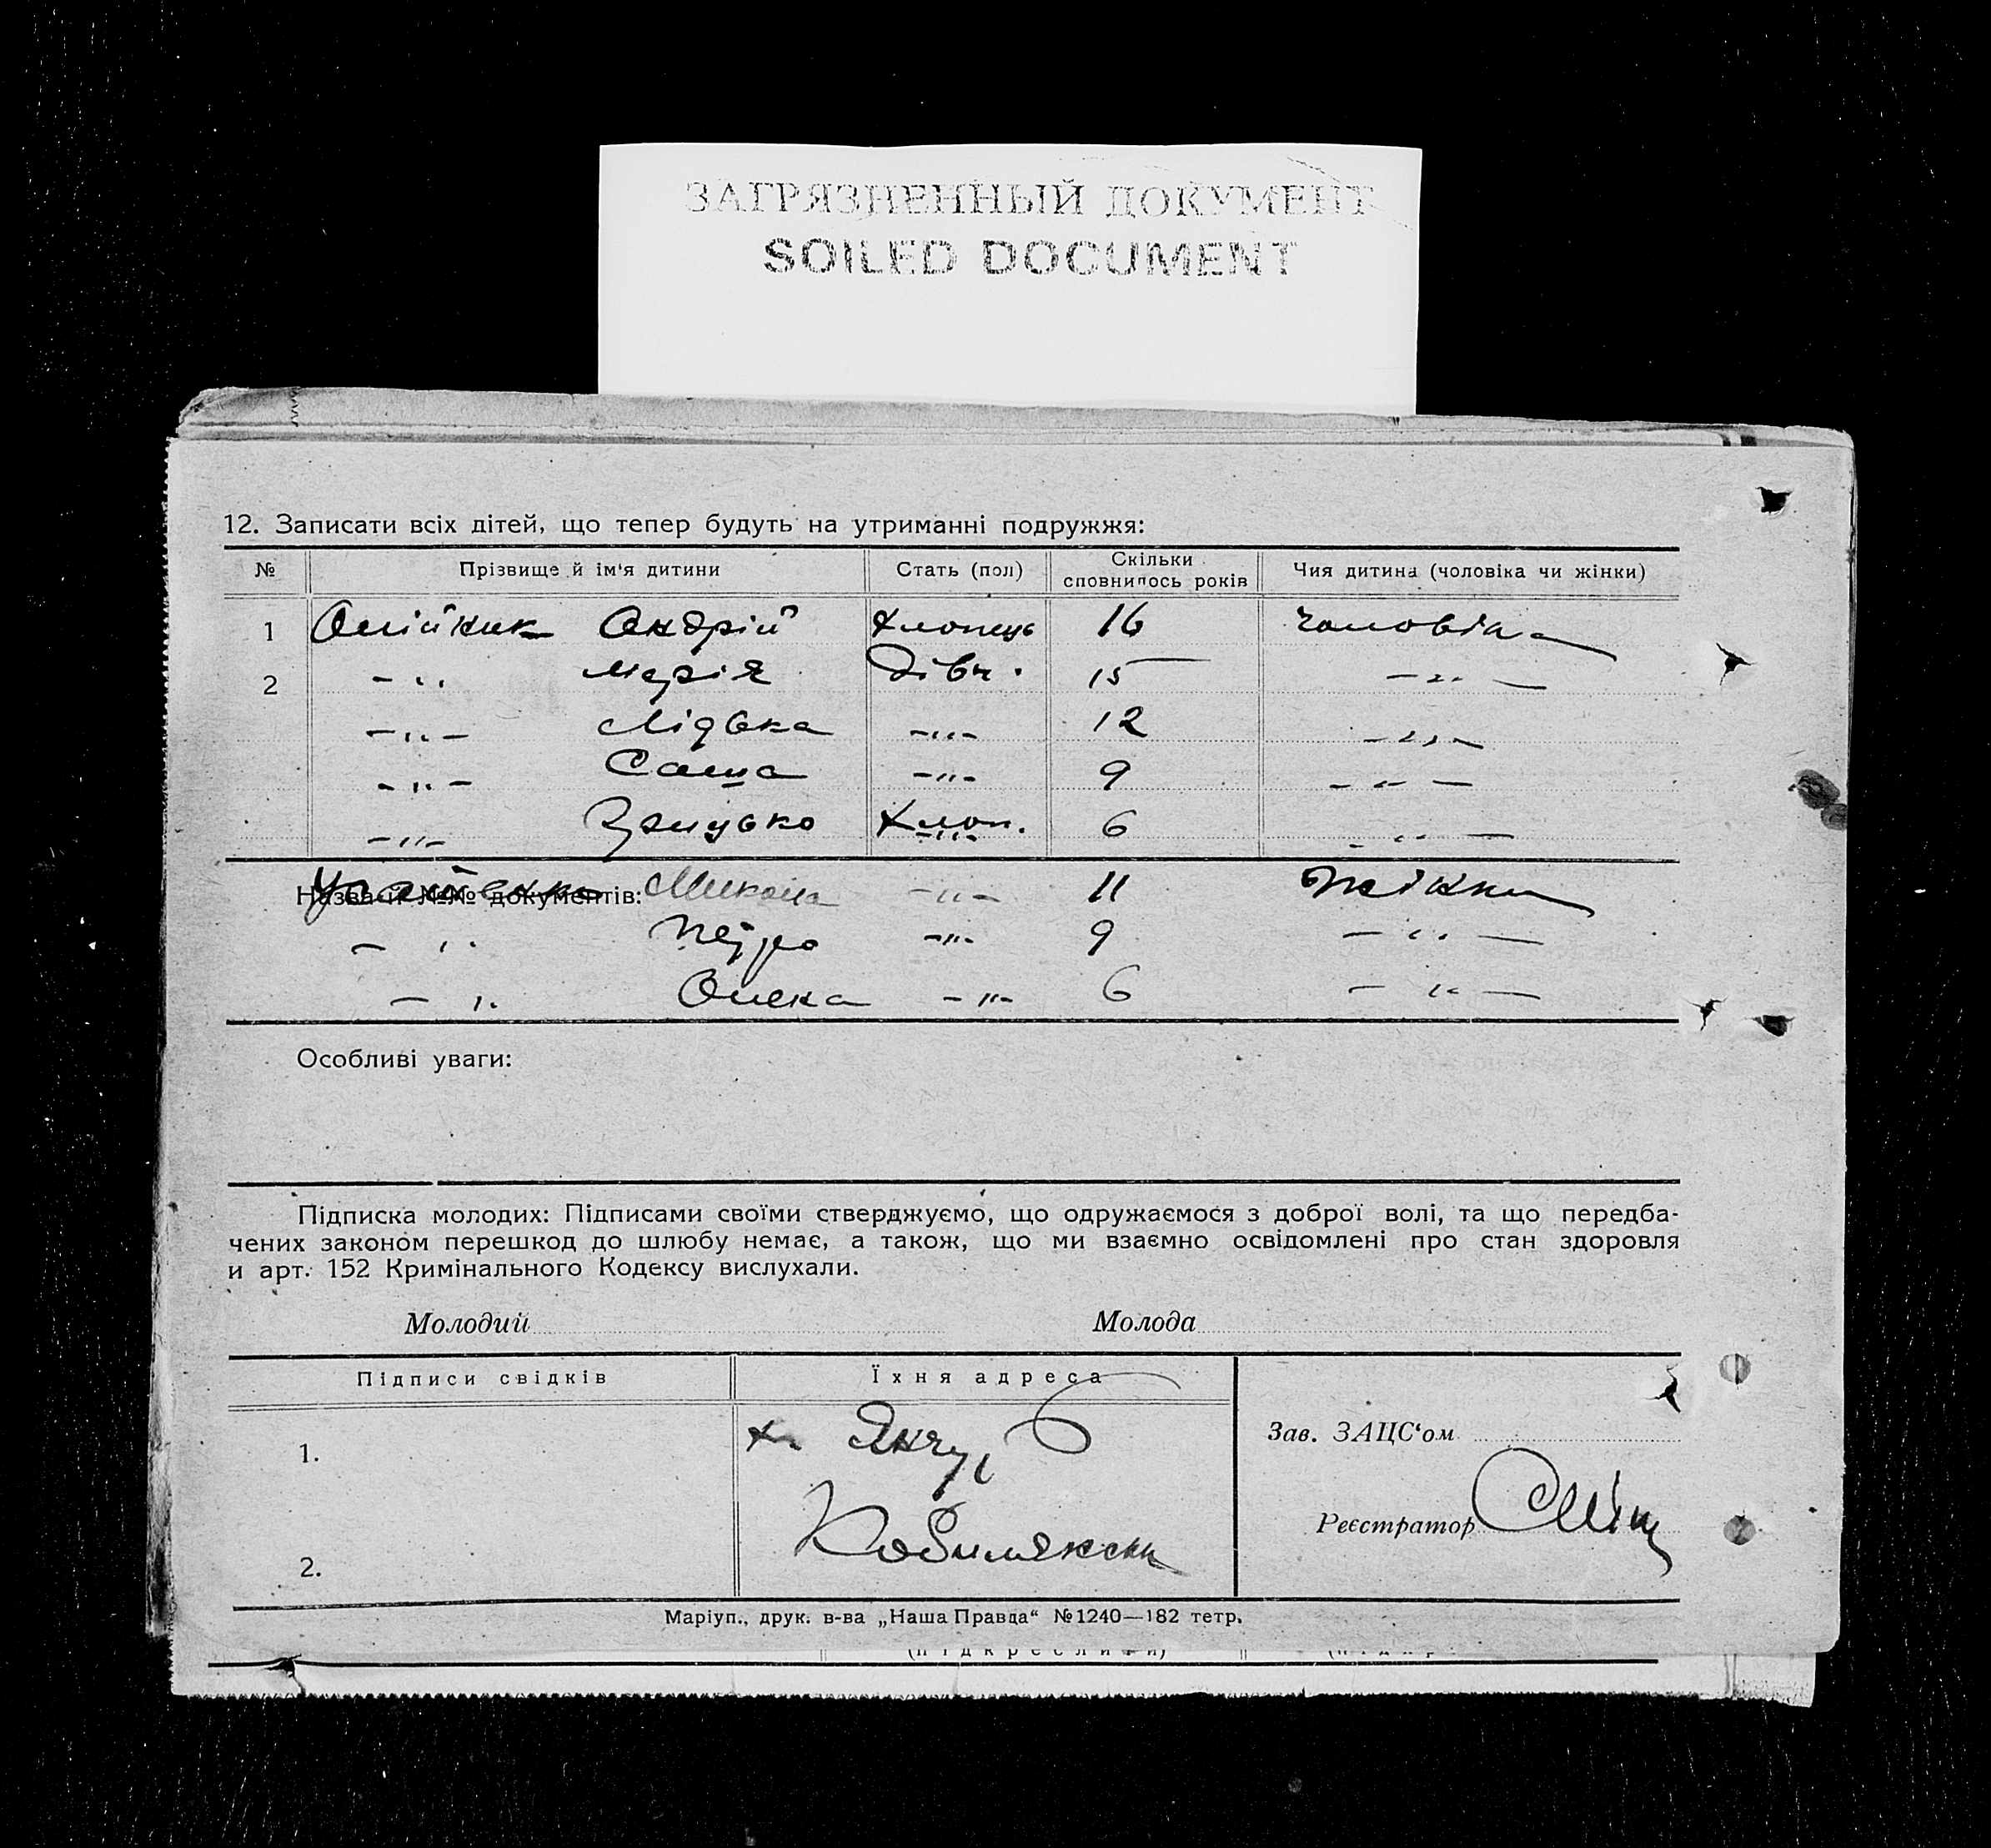 ЗАГРЯЗНЕННЫЙ ДОКУМЕНТ
SOILED DOCUMENT
12. Записати всіх дітей, що тепер будуть на утриманні подружжя:
№ Прізвище й ім'я дитини Стать (пол) Скільки сповнилось років Чия дитина (чоловіка чи жінки)
1 Олійник Андрій хлопець 16 чоловіка
2 -"- Марія дівч. 15 -"-
-"- Лідька -"- 12 -"-
-"- Саша -"- 9 -"-
-"- Грицько хлоп. 6 -"-
Назва й №№ документів: Микола -"- 11 жінки
-"- Петро -"- 9 -"-
-"- Олека -"- 6 -"-
Особливі уваги:
Підписка молодих: Підписами своїми стверджуємо, що одружаємося з доброї волі, та що передба-
чених законом перешкод до шлюбу немає, а також, що ми взаємно освідомлені про стан здоровля
и арт. 152 Кримінального Кодексу вислухали.
Молодий Молода
Підписи свідків Їхня адреса
Зав. ЗАЦС'ом
1. х.
Реєстратор
2.
Маріуп., друк. в-ва „Наша Правда“ №1240—182 тетр.
(підкреслити)